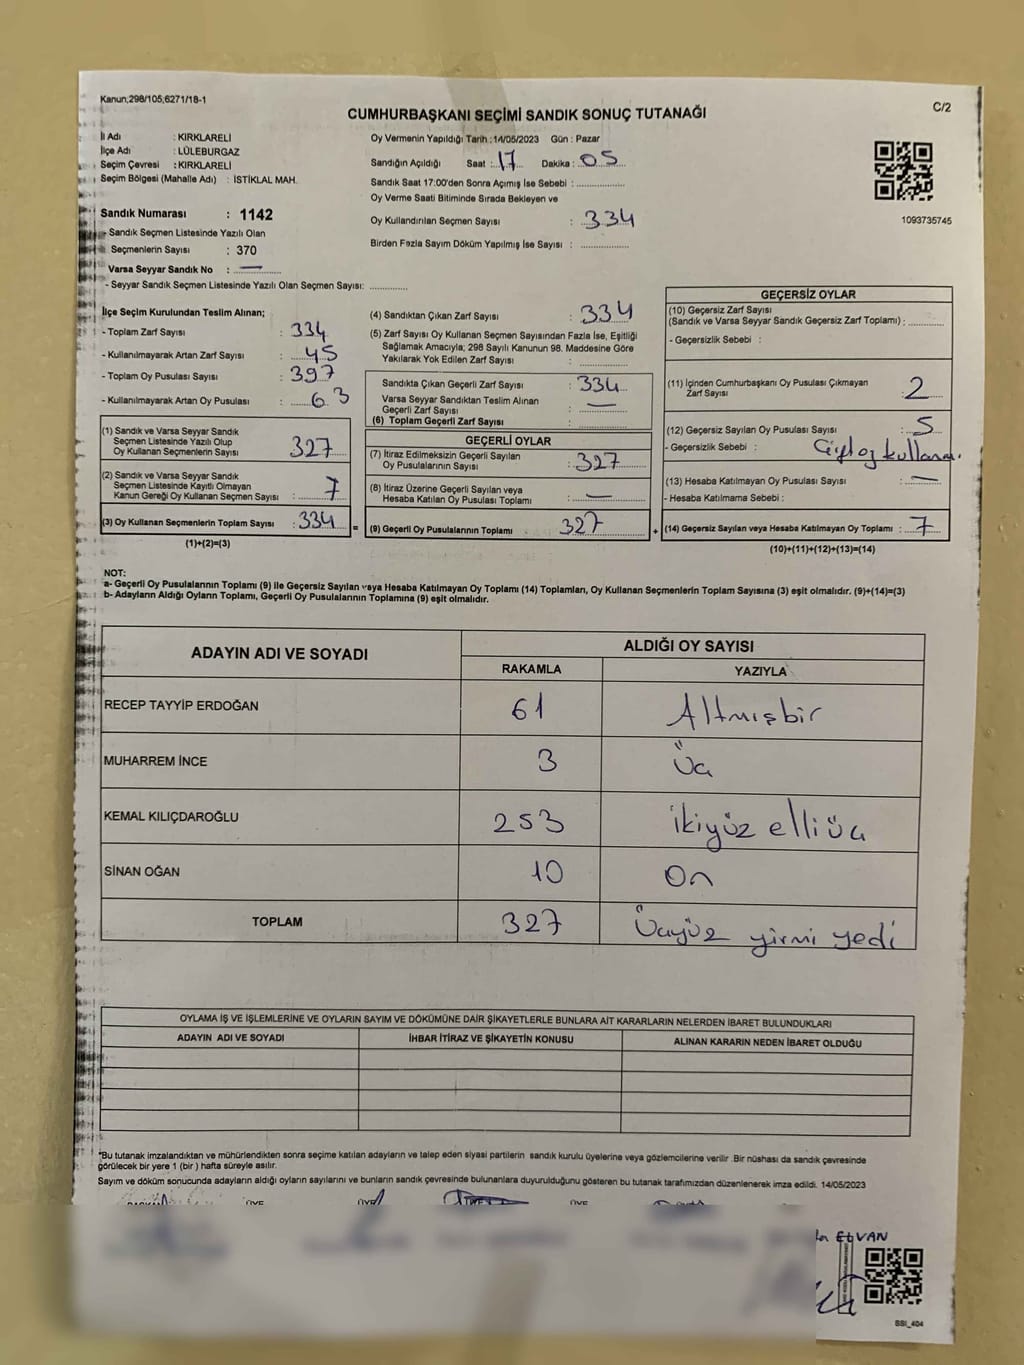 Kanun;298/105,6271/18-1
C/2
CUMHURBAŞKANI SEÇİMİ SANDIK SONUÇ TUTANAĞI
İl Adı : KIRKLARELİ
İlçe Adı : LÜLEBURGAZ
Seçim Çevresi : KIRKLARELİ
Seçim Bölgesi (Mahalle Adı) : İSTİKLAL MAH.
Sandık Numarası : 1142
- Sandık Seçmen Listesinde Yazılı Olan
Seçmenlerin Sayısı : 370
Varsa Seyyar Sandık No : —
- Seyyar Sandık Seçmen Listesinde Yazılı Olan Seçmen Sayısı: ............
Oy Vermenin Yapıldığı Tarih : 14/05/2023 Gün : Pazar
Sandığın Açıldığı Saat : 17 Dakika : 05
Sandık Saat 17:00'den Sonra Açımış İse Sebebi : ............
Oy Verme Saati Bitiminde Sırada Bekleyen ve
Oy Kullandırılan Seçmen Sayısı : 334
Birden Fazla Sayım Döküm Yapılmış İse Sayısı : ............
1093735745
İlçe Seçim Kurulundan Teslim Alınan;
- Toplam Zarf Sayısı : 334
- Kullanılmayarak Artan Zarf Sayısı : 45
- Toplam Oy Pusulası Sayısı : 397
- Kullanılmayarak Artan Oy Pusulası : 63
(1) Sandık ve Varsa Seyyar Sandık
Seçmen Listesinde Yazılı Olup
Oy Kullanan Seçmenlerin Sayısı 327
(2) Sandık ve Varsa Seyyar Sandık
Seçmen Listesinde Kayıtlı Olmayan
Kanun Gereği Oy Kullanan Seçmen Sayısı : 7
(3) Oy Kullanan Seçmenlerin Toplam Sayısı : 334
(1)+(2)=(3)
(4) Sandıktan Çıkan Zarf Sayısı : 334
(5) Zarf Sayısı Oy Kullanan Seçmen Sayısından Fazla İse, Eşitliği
Sağlamak Amacıyla; 298 Sayılı Kanunun 98. Maddesine Göre
Yakılarak Yok Edilen Zarf Sayısı : ............
Sandıkta Çıkan Geçerli Zarf Sayısı : 334
Varsa Seyyar Sandıktan Teslim Alınan
Geçerli Zarf Sayısı : —
(6) Toplam Geçerli Zarf Sayısı : ............
GEÇERLİ OYLAR
(7) İtiraz Edilmeksizin Geçerli Sayılan
Oy Pusulalarının Sayısı : 327
(8) İtiraz Üzerine Geçerli Sayılan veya
Hesaba Katılan Oy Pusulası Toplamı : —
(9) Geçerli Oy Pusulalarının Toplamı : 327
GEÇERSİZ OYLAR
(10) Geçersiz Zarf Sayısı
(Sandık ve Varsa Seyyar Sandık Geçersiz Zarf Toplamı) : ............
- Geçersizlik Sebebi :
(11) İçinden Cumhurbaşkanı Oy Pusulası Çıkmayan
Zarf Sayısı : 2
(12) Geçersiz Sayılan Oy Pusulası Sayısı : 5
- Geçersizlik Sebebi : Çift oy kullanma.
(13) Hesaba Katılmayan Oy Pusulası Sayısı : —
- Hesaba Katılmama Sebebi :
(14) Geçersiz Sayılan veya Hesaba Katılmayan Oy Toplamı : 7
(10)+(11)+(12)+(13)=(14)
NOT:
a- Geçerli Oy Pusulalarının Toplamı (9) ile Geçersiz Sayılan veya Hesaba Katılmayan Oy Toplamı (14) Toplamları, Oy Kullanan Seçmenlerin Toplam Sayısına (3) eşit olmalıdır. (9)+(14)=(3)
b- Adayların Aldığı Oyların Toplamı, Geçerli Oy Pusulalarının Toplamına (9) eşit olmalıdır.
ADAYIN ADI VE SOYADI
ALDIĞI OY SAYISI
RAKAMLA YAZIYLA
RECEP TAYYİP ERDOĞAN 61 Altmışbir
MUHARREM İNCE 3 Üç
KEMAL KILIÇDAROĞLU 253 ikiyüz elli üç
SİNAN OĞAN 10 On
TOPLAM 327 Üçyüz yirmi yedi
OYLAMA İŞ VE İŞLEMLERİNE VE OYLARIN SAYIM VE DÖKÜMÜNE DAİR ŞİKAYETLERLE BUNLARA AİT KARARLARIN NELERDEN İBARET BULUNDUKLARI
ADAYIN ADI VE SOYADI İHBAR İTİRAZ VE ŞİKAYETİN KONUSU ALINAN KARARIN NEDEN İBARET OLDUĞU
*Bu tutanak imzalandıktan ve mühürlendikten sonra seçime katılan adayların ve talep eden siyasi partilerin sandık kurulu üyelerine veya gözlemcilerine verilir .Bir nüshası da sandık çevresinde
görülecek bir yere 1 (bir ) hafta süreyle asılır.
Sayım ve döküm sonucunda adayların aldığı oyların sayılarını ve bunların sandık çevresinde bulunanlara duyurulduğunu gösteren bu tutanak tarafımızdan düzenlenerek imza edildi. 14/05/2023
ELVAN
SSI_404